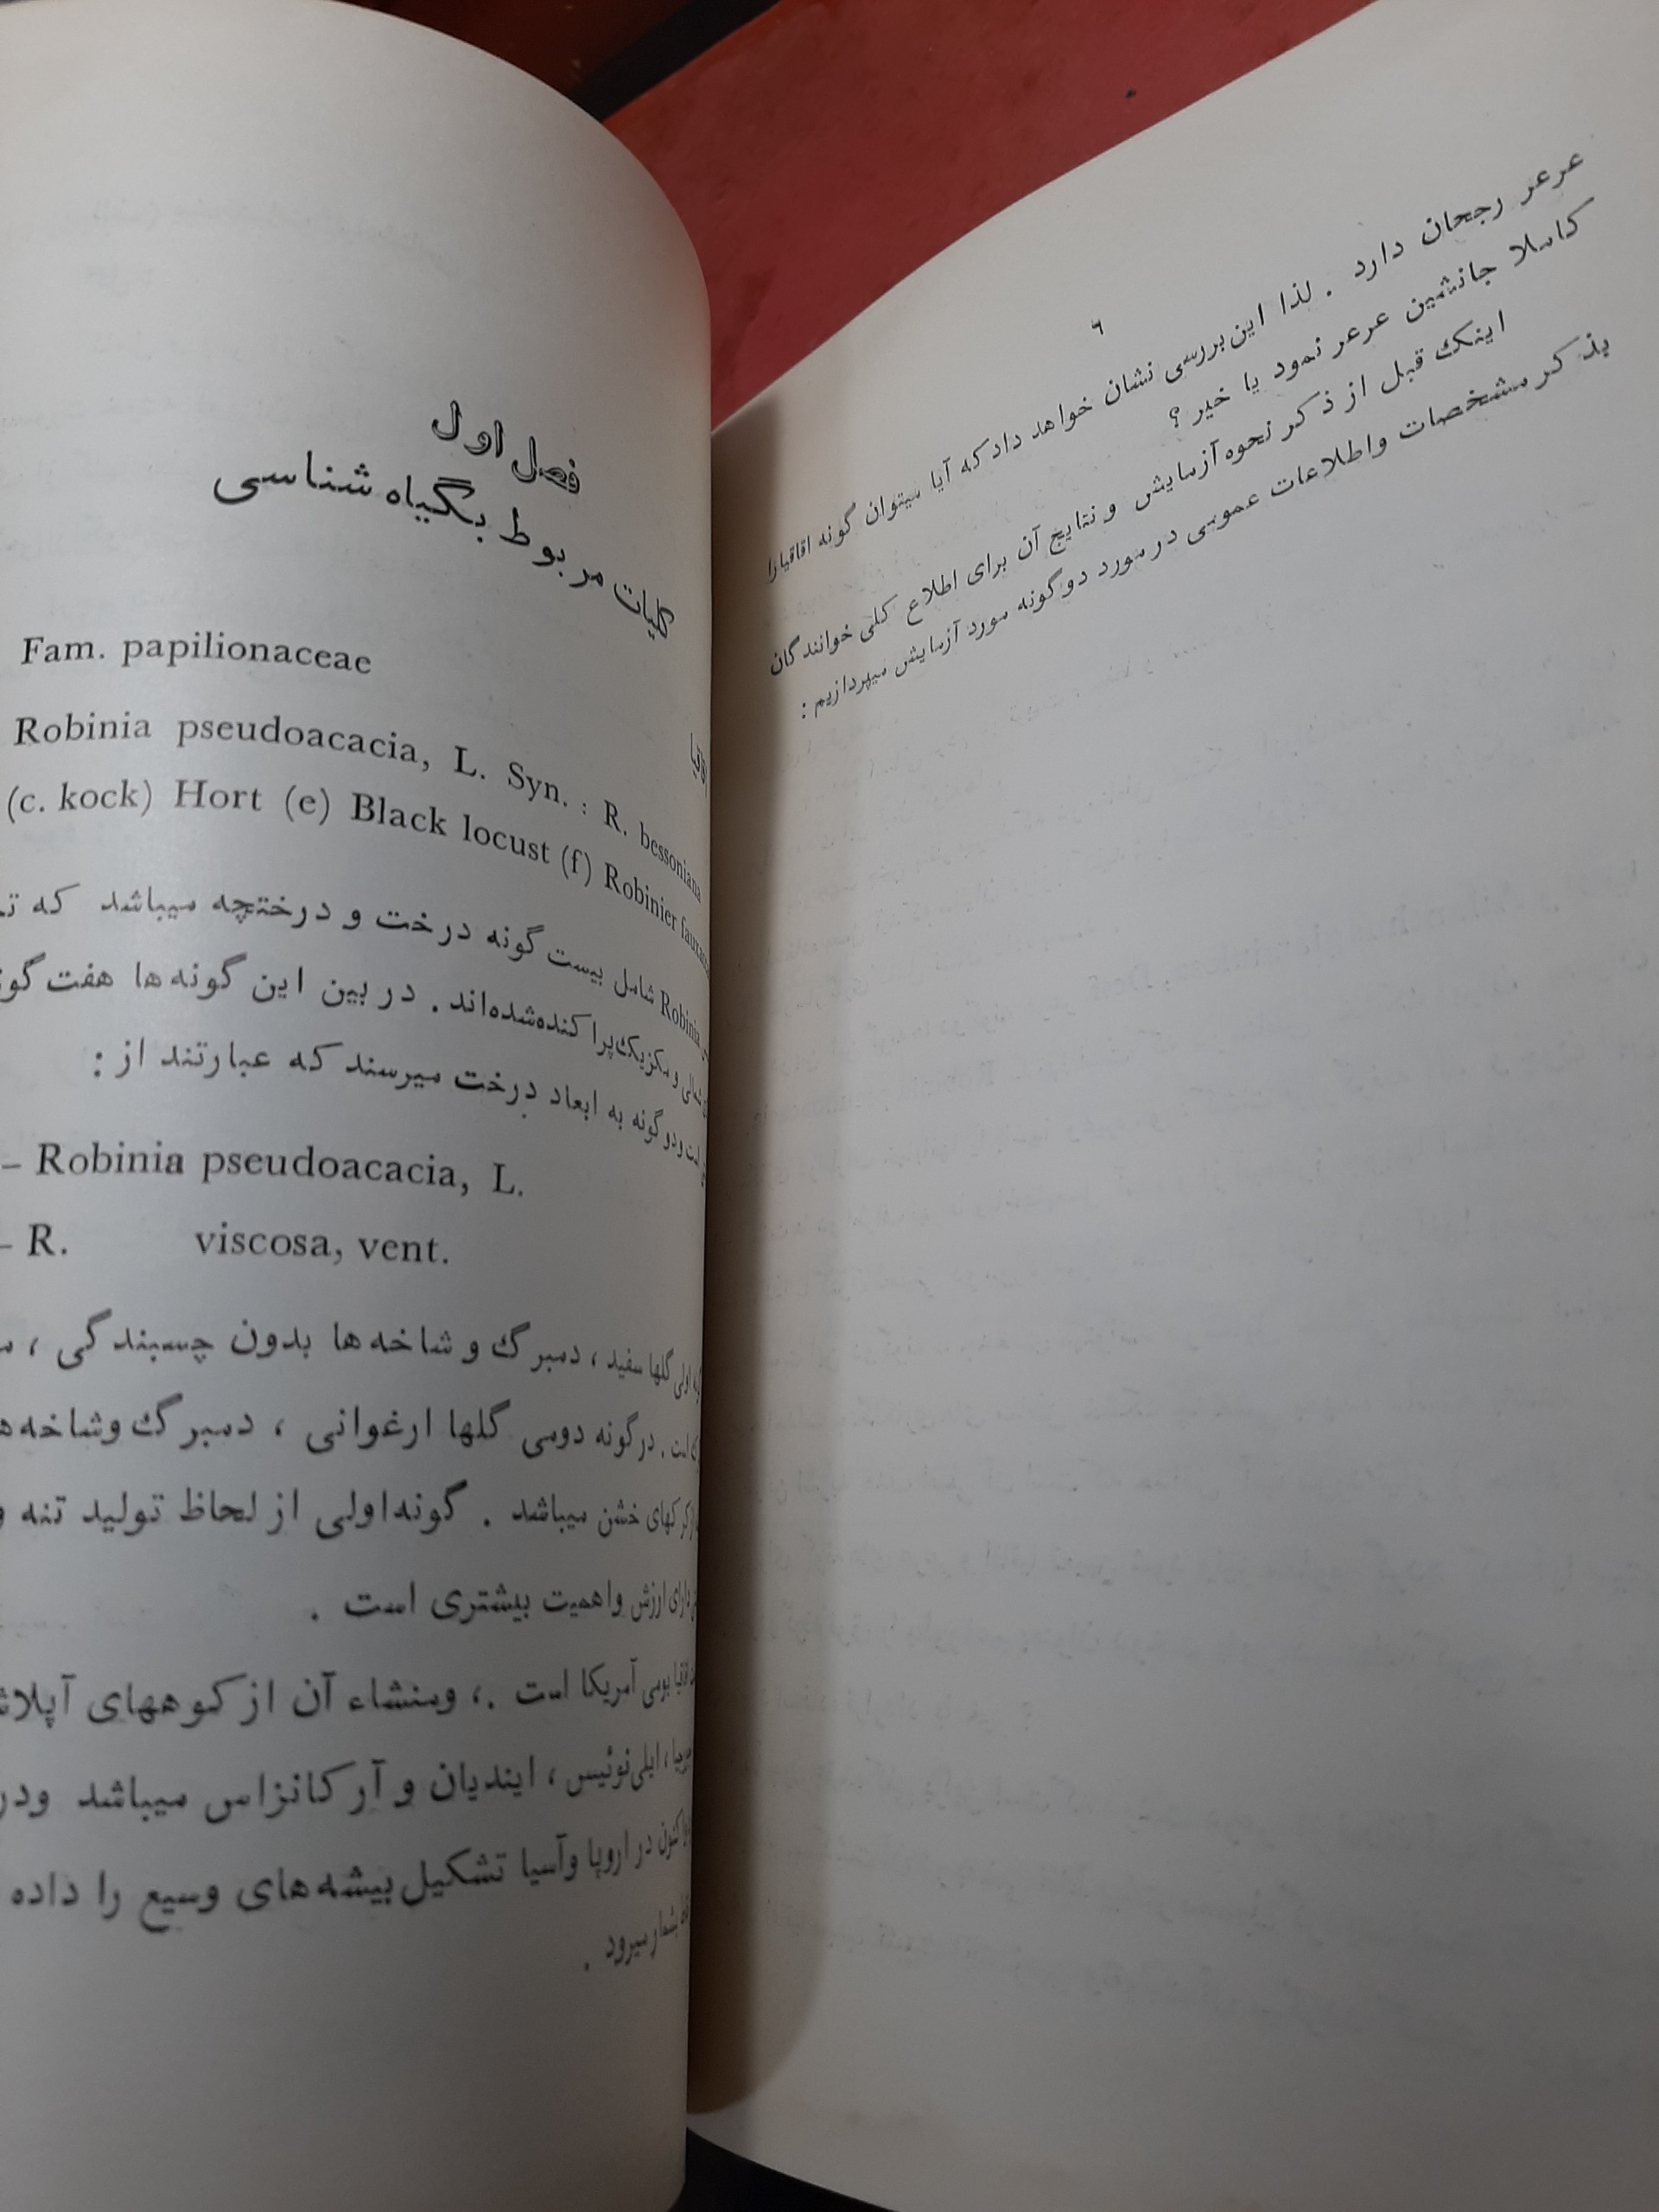 ٦
عرعر رجحان دارد . لذا این بررسی نشان خواهد داد که آیا میتوان گونه اقاقیا را
کاملا جانشین عرعر نمود یا خیر ؟
اینک قبل از ذکر نحوه آزمایش و نتایج آن برای اطلاع کلی خوانندگان
بذکر مشخصات واطلاعات عمومی در مورد دوگونه مورد آزمایش میپردازیم :
فصل اول
کلیات مربوط بگیاه شناسی
اقاقیا
Fam. papilionaceae
Robinia pseudoacacia, L. Syn. : R. bessoniana
(c. kock) Hort (e) Black locust (f) Robinier
Robinia شامل بیست گونه درخت و درختچه میباشد که
شمالی و مکزیک پراکنده‌شده‌اند . در بین این گونه ها هفت
است ودوگونه به ابعاد درخت میرسند که عبارتند از :
– Robinia pseudoacacia, L.
– R. viscosa, vent.
اولی گلها سفید ، دمبرگ و شاخه ها بدون چسبندگی ،
است . درگونه دومی گلها ارغوانی ، دمبرگ وشاخه
کرکهای خشن میباشد . گونه‌اولی از لحاظ تولید تنه
دارای ارزش واهمیت بیشتری است .
بومی آمریکا است .، ومنشاء آن از کوههای
، ایلی‌نوئیس ، ایندیان و آرکانزاس میباشد
در اروپا وآسیا تشکیل بیشه‌های وسیع را داده
بشمار میرود .